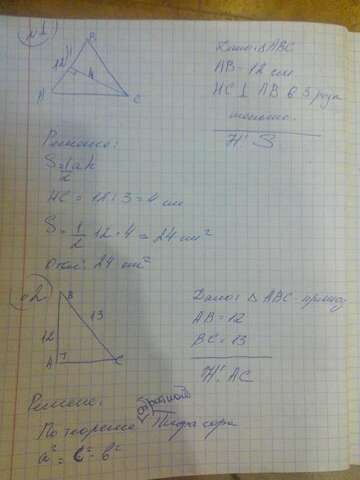 №1
B
12
H
4
A
C
Дано: △ABC
AB = 12 см
HC ⊥ AB в 3 раза
меньше.
Н: S
Решение:
S = 1/2 ah
HC = 12 : 3 = 4 см
S = 1/2 12 · 4 = 24 см²
Ответ: 24 см²
№2.
B
12
13
A
C
Дано: △ ABC - прямоуг
AB = 12
BC = 13
Н: AC
Решение:
обратной
По теореме Пифагора
a² = c² - b²